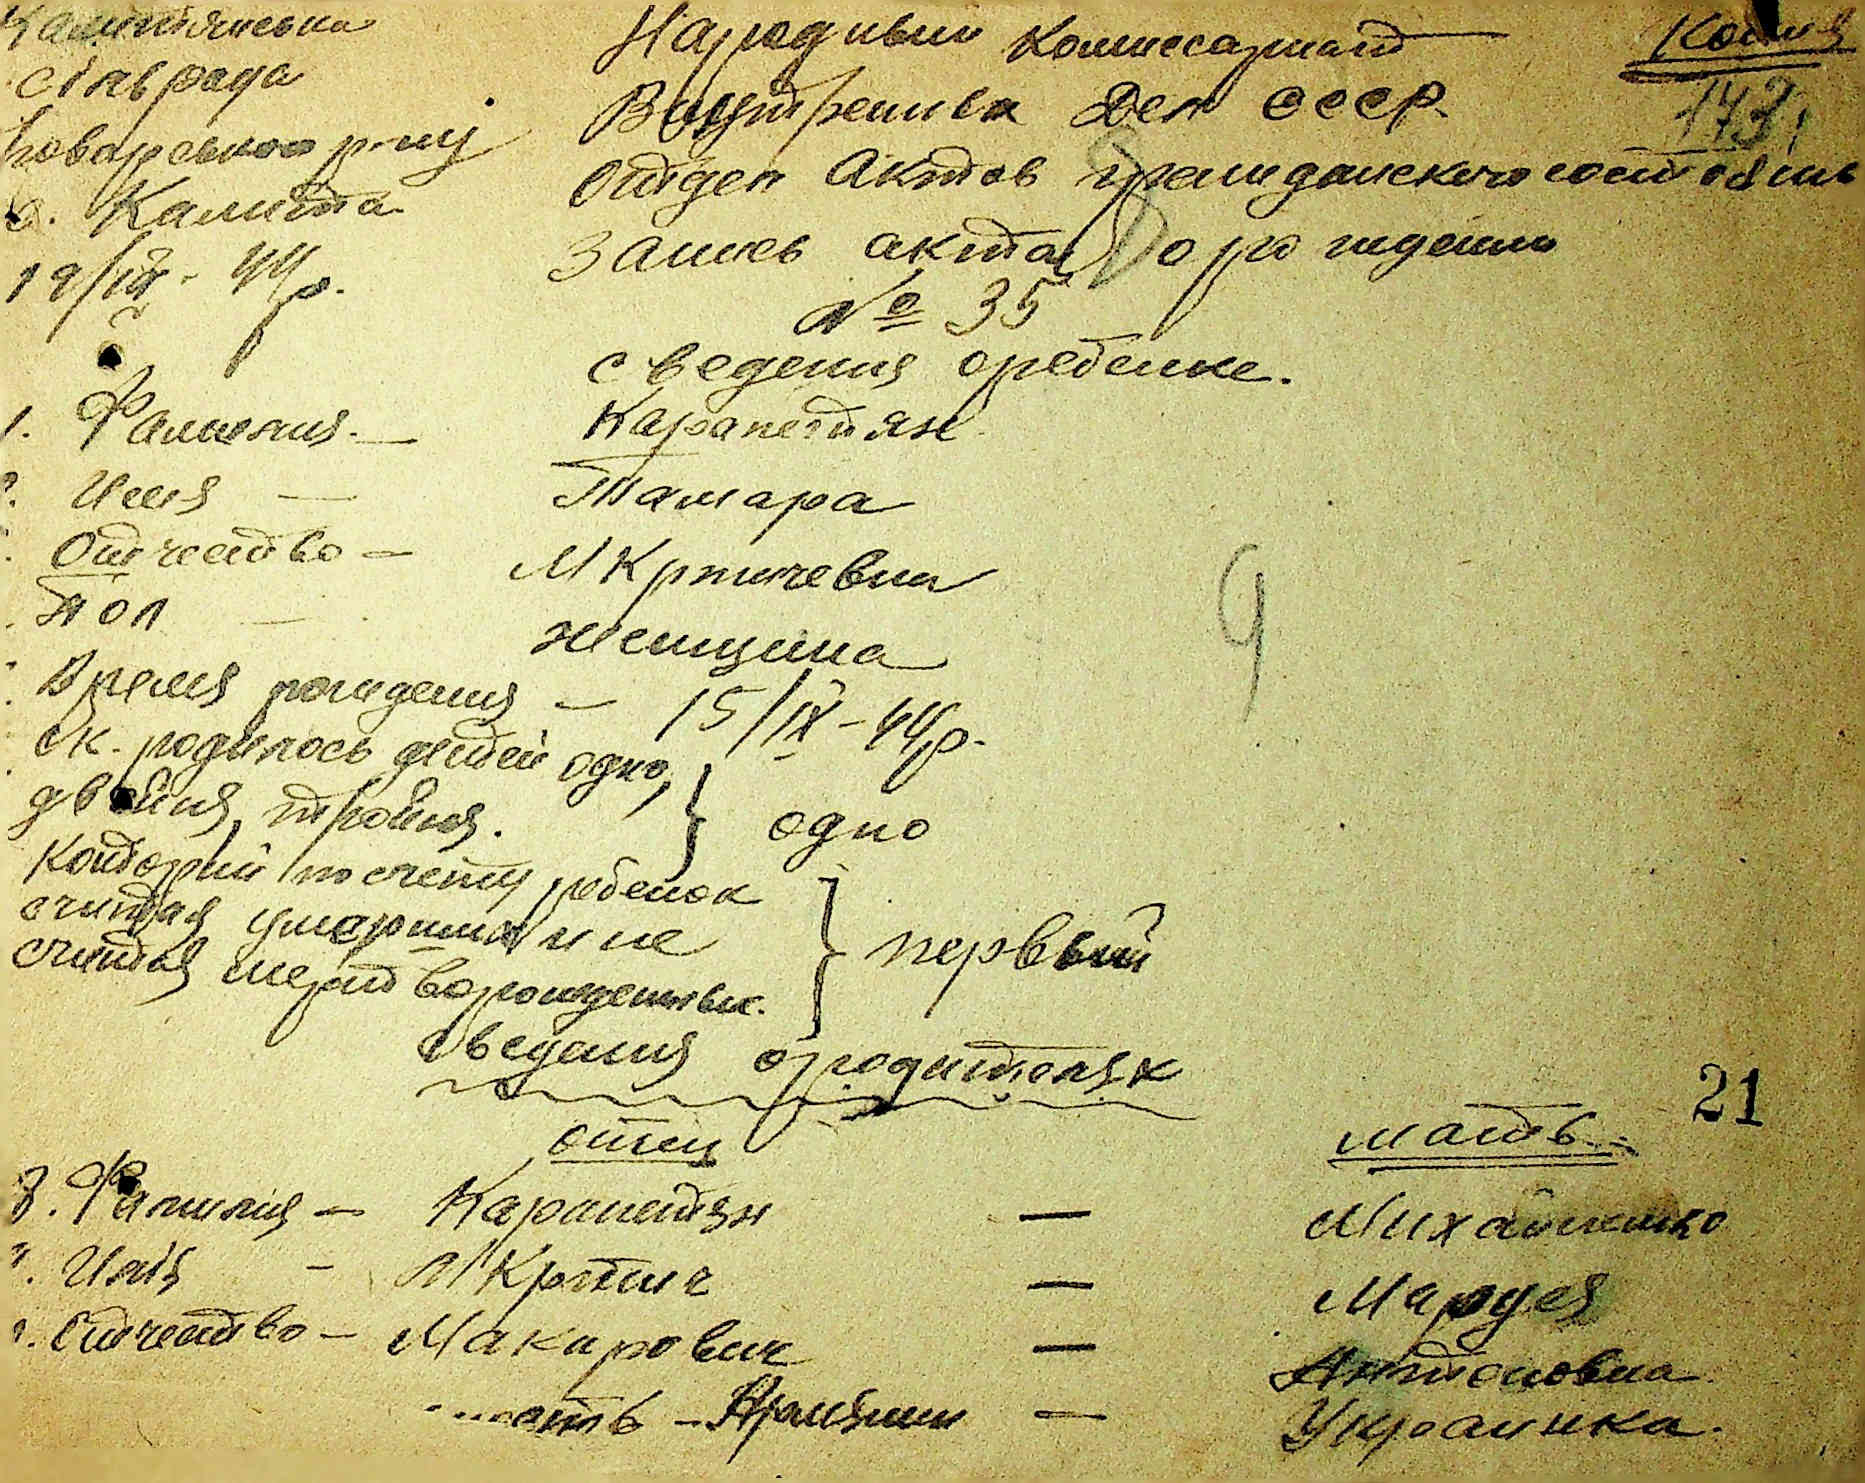 Калитянська
сільрада
Броварського р-ну
с. Калита
19/IX - 44р.
Копия
173
Народным Комиссариат
Внутренных Дел СССР.
Отдел Актов гражданского состояния
Запись акта о рождении
№ 35
Сведения о ребенке.
1. Фамилия. — Карапетян
Имя — Тамара
Отчество — МКртичевна
Пол — женщина
Время рождения — 15/IX - 44р.
9
Ск. родилось детей одно,
двойня, тройня. } одно
Который по счету ребенок
считая умерших и не
считая мертворожденных. } первый
Сведения о родителях
21
отец
мать
8. Фамилия — Карапетян — Михайленко
Имя — МКртич — Маруся
Отчество — Макарович — Антоновна
ость — Армянин — Украинка.